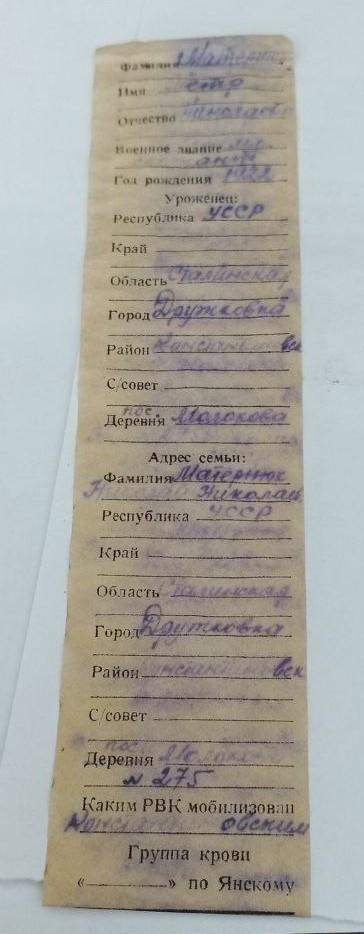 Фамилия Матернюк
Имя Петр
Отчество Николаев
Военное звание мл.
ант
Год рождения 1922
Уроженец:
Республика УССР
Край
Область Сталинская
Город Дружковка
Район вск
С/совет
пос.
Деревня Молокова
Адрес семьи:
Фамилия Матернюк
Николай Николаев
Республика УССР
Край
Область Сталинская
Город Дружковка
Район вск
С/совет
пос.
Деревня Молоков
№ 275
Каким РВК мобилизован
овским
Группа крови
«» по Янскому